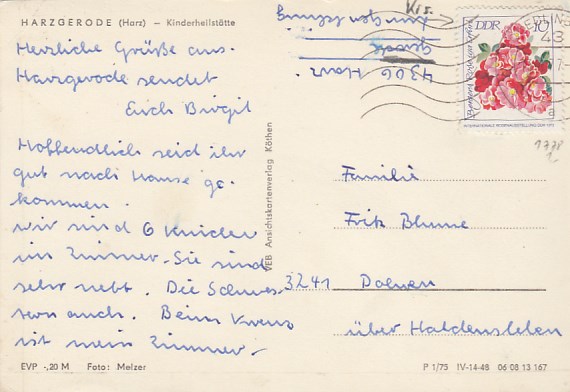 HARZGERODE (Harz) – Kinderheilstätte
Herzliche Grüße aus
Harzgerode sendet
Euch Birgit
Hoffendlich seid ihr
gut nach Hause ge-
kommen.
wir sind 6 Kinder
im Zimmer. Sie sind
sehr nett. Die Schwes-
tern auch. Beim Kreuz
ist mein Zimmer.
EVP -,20 M Foto: Melzer
VEB Ansichtskartenverlag Köthen
4306 Harz.
DDR 10
Familie
Fritz Blume
3241 Dolven
über Haldensleben
P 1/75 IV-14-48 06 08 13 167